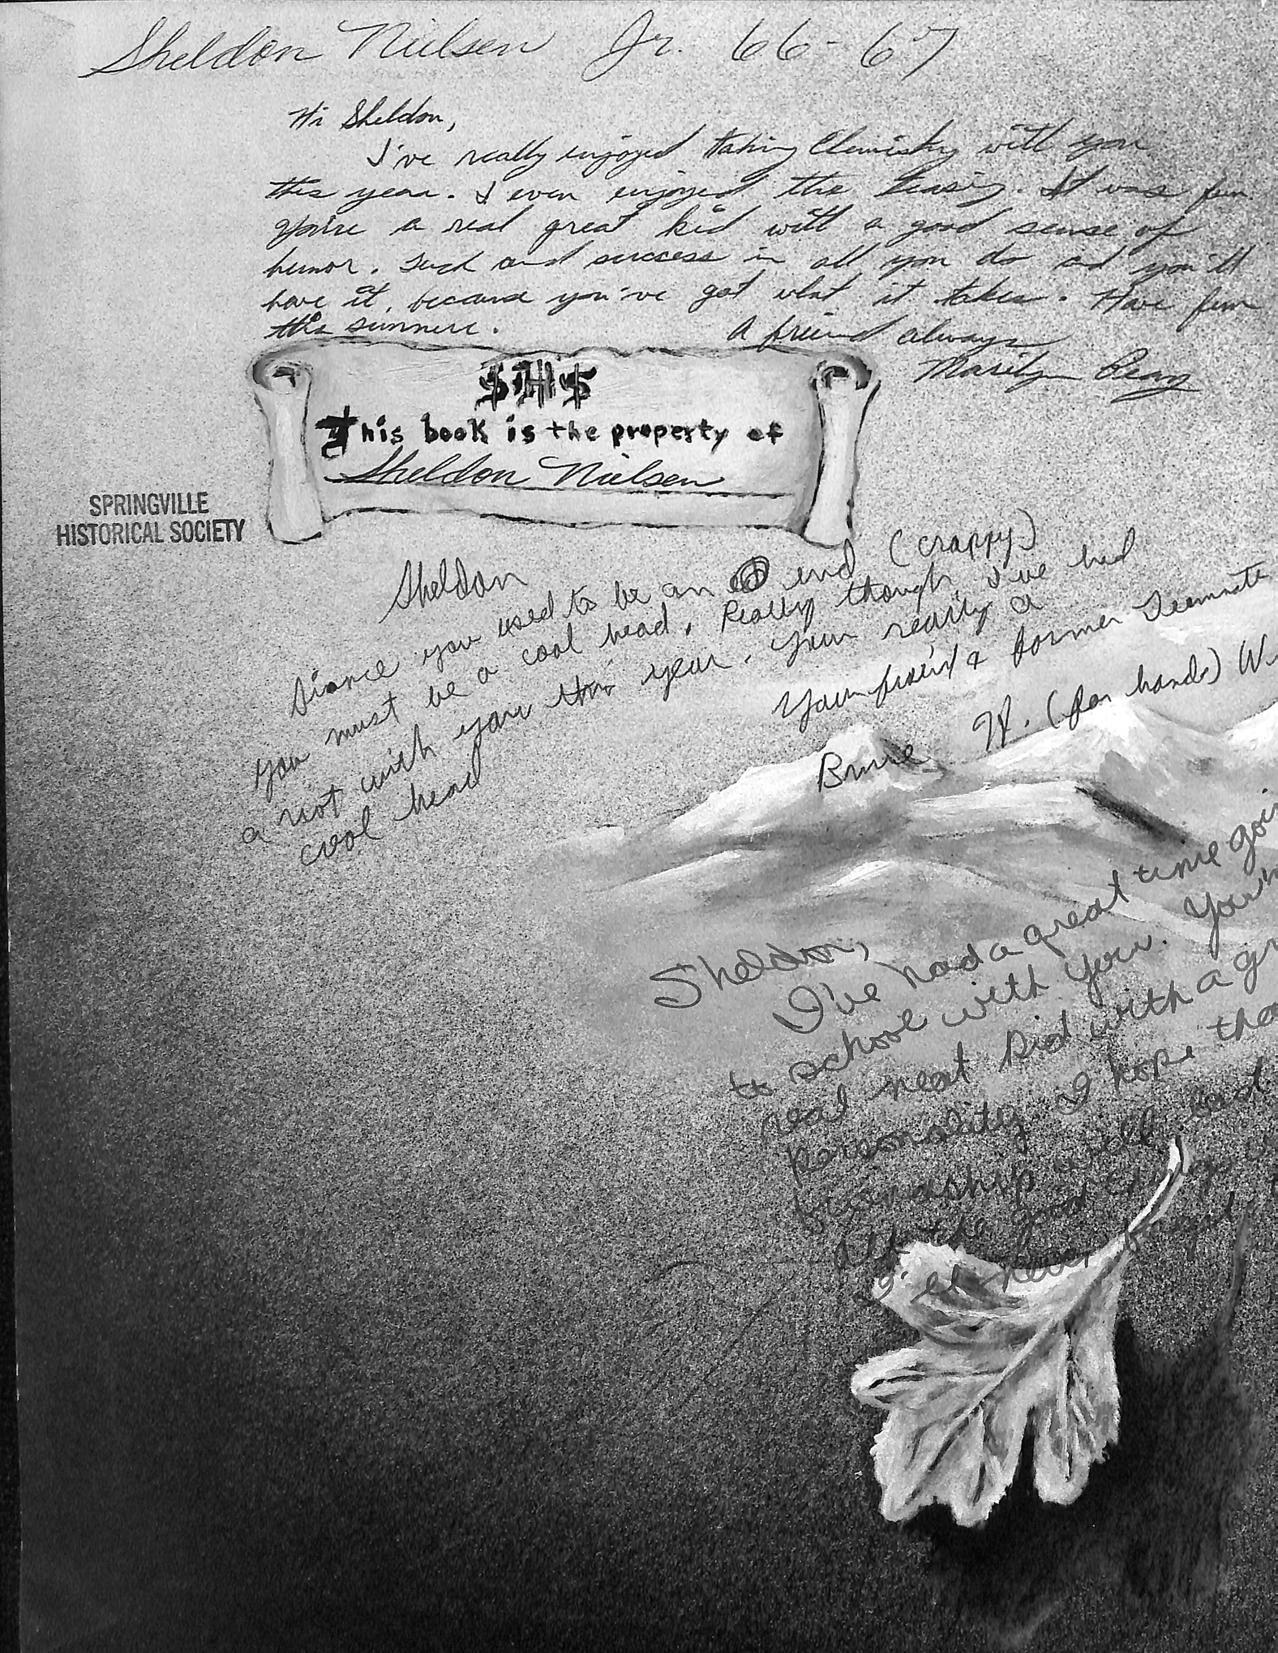 Sheldon Nielsen Jr. 66-67
Hi Sheldon,
I've really enjoyed taking Chemistry with you
this year. I even enjoyed the teasing. It was fun
You're a real great kid with a good sense of
humor. Luck and success in all you do and you'll
have it, because you've got what it takes. Have fun
this summer.
A friend always
Marilyn
SHS
This book is the property of
Sheldon Nielsen
SPRINGVILLE
HISTORICAL SOCIETY
Sheldon
Sience you used to be an end (crappy)
you must be a cool head. Really though, I've had
a riot with you this year. Your really a
cool head
Your friend & former Teammate
Bruce W. (for hands) W
Sheldon,
I've had a great time goi
to school with you. You'r
real neat kid with a gr
personality I hope
friendship will last
All the good things
I'll never forget